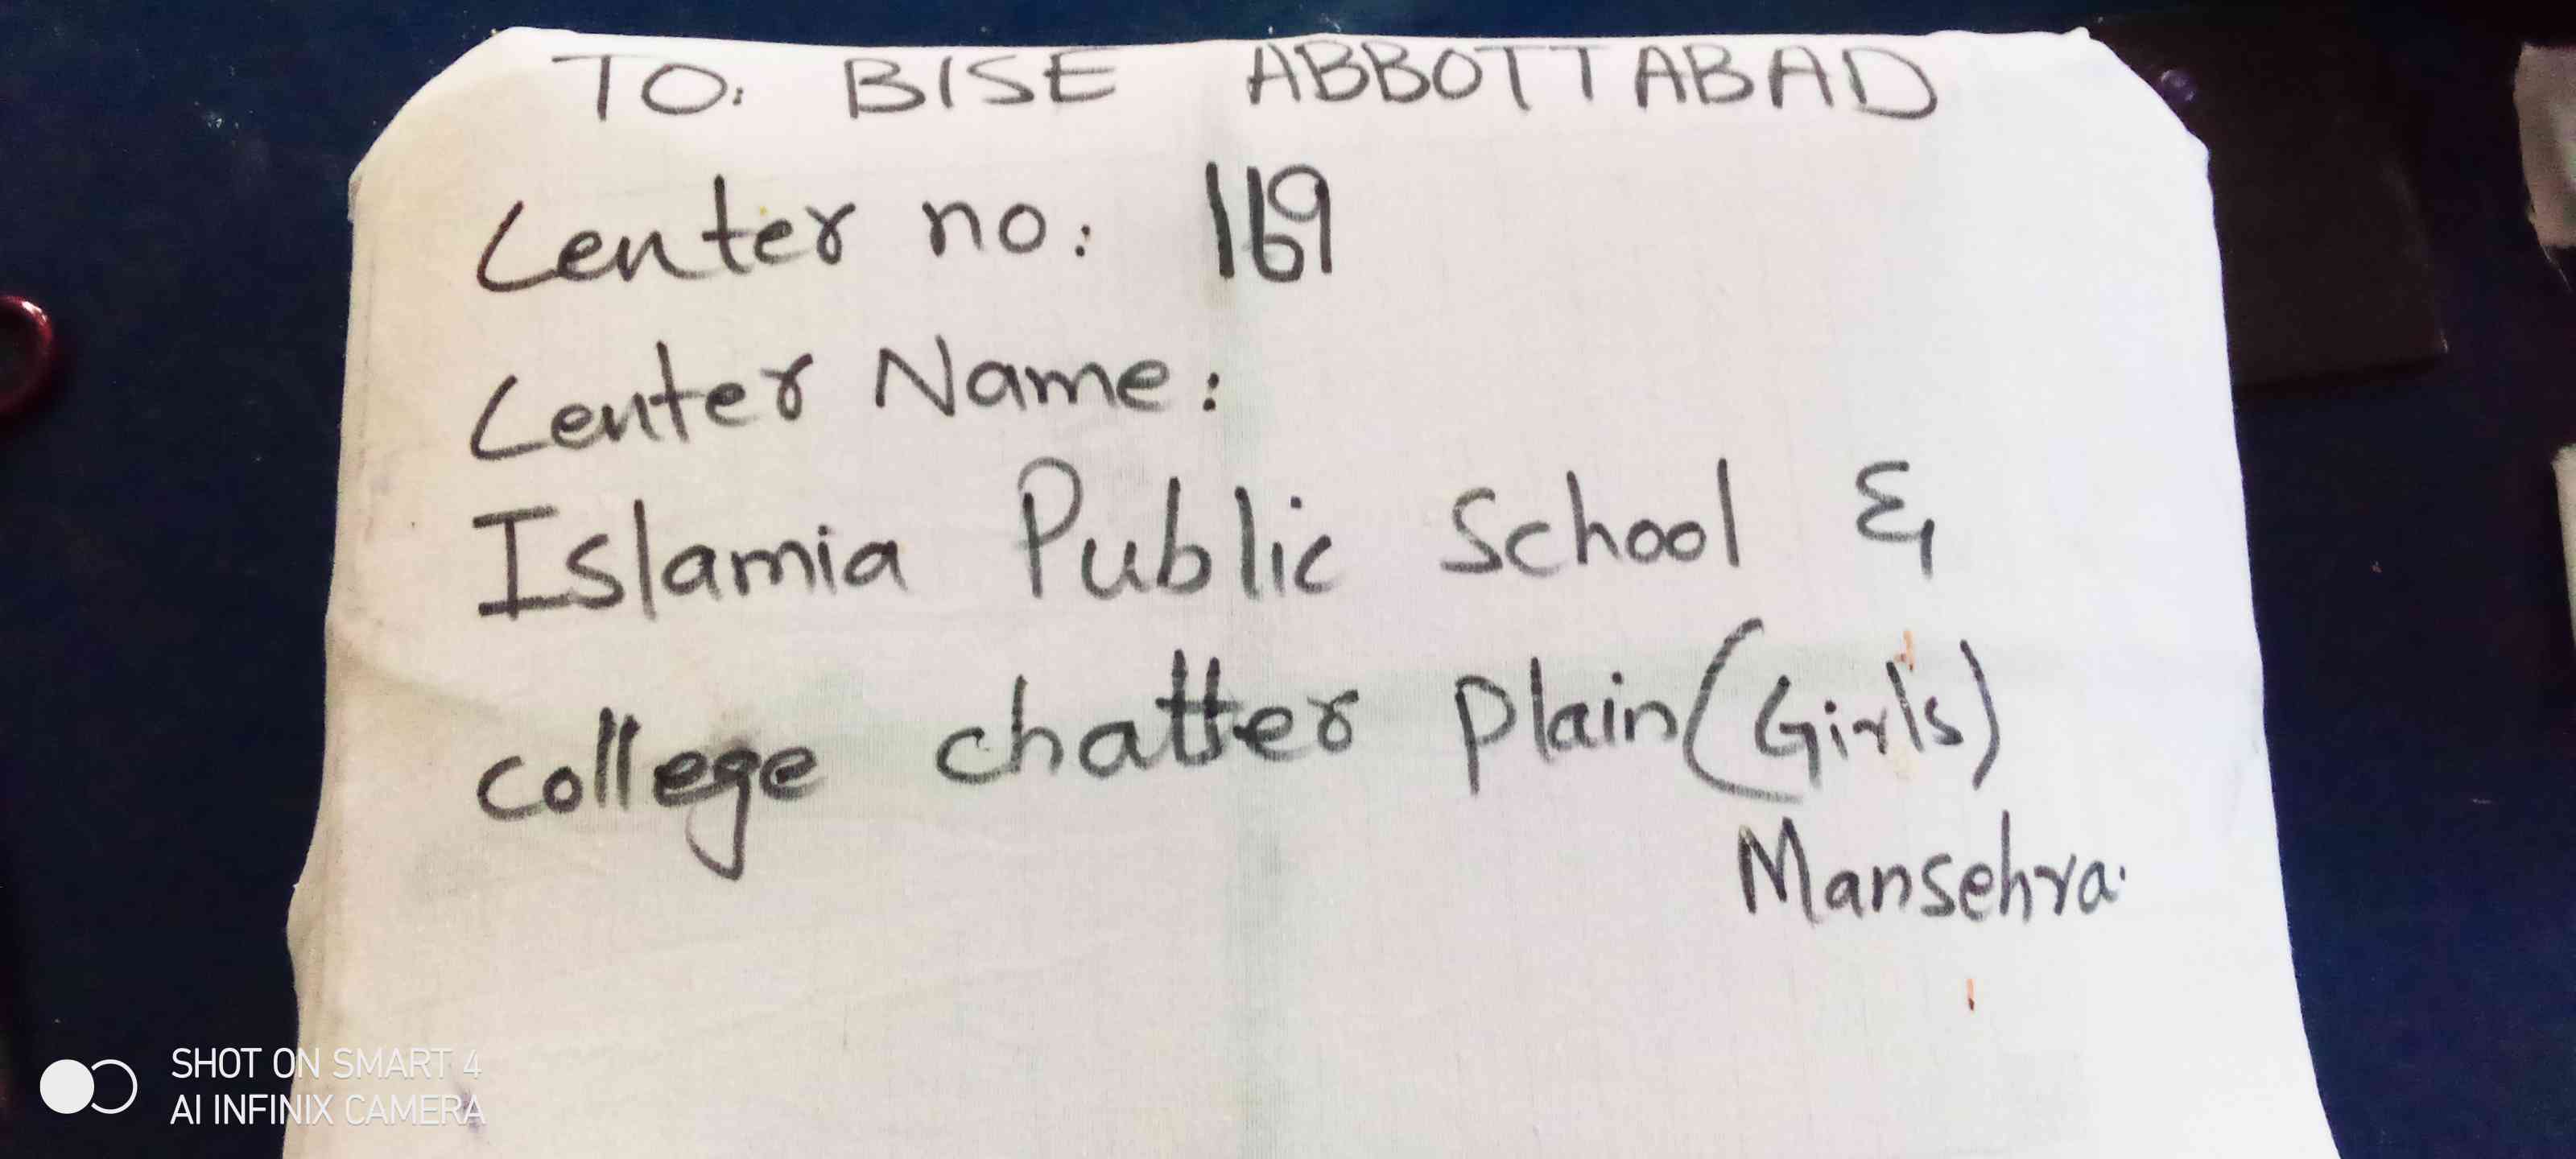 TO: BISE ABBOTTABAD
Center no: 169
Center Name:
Islamia Public School &
college chatter plain (Girls)
Mansehra.
SHOT ON SMART 4
AI INFINIX CAMERA